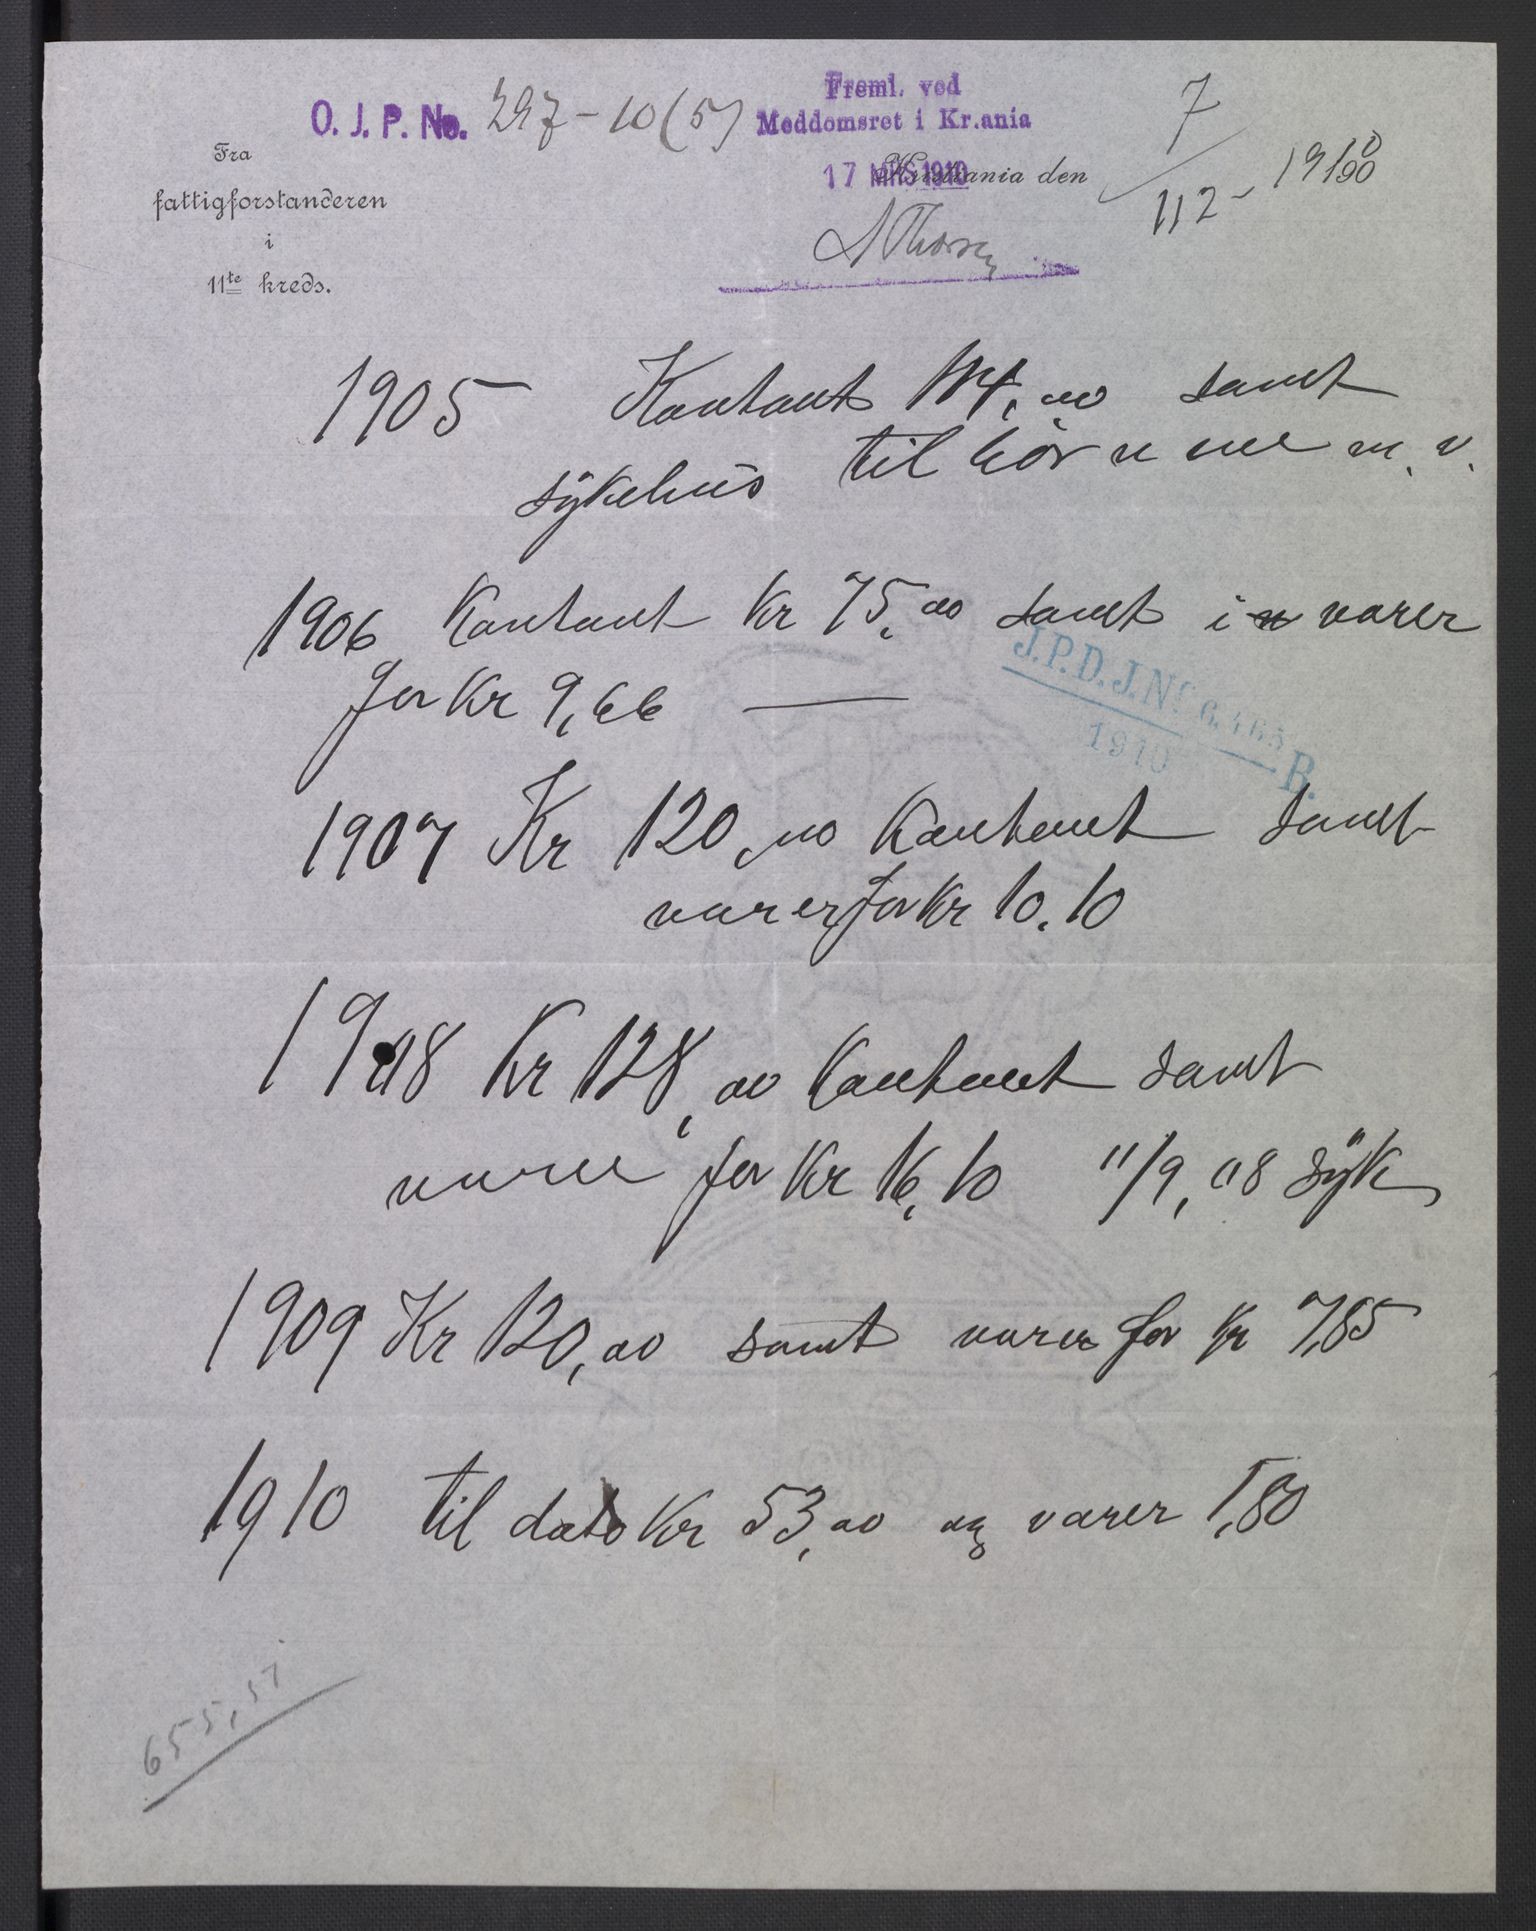 O. J. P. No. 297-10 (5)
Freml. ved
Meddomsret i Kr.ania
17 MRS 1910
Fra
fattigforstanderen
i
11te kreds.
Kristiania den 7/12- 1910
A Thorsen
1905 Kontant 114,00 samt
til børnene m. v.
sykehus
1906 Kontant Kr 75,00 samt i varer
for Kr 9,66 —
J.P.D.J.No 6.463 B.
1910
1907 Kr 120,00 Kontant samt
varer for Kr 10.10
1908 Kr 128,00 Kontant samt
varer for Kr 16,10 11/9, 08 syk
1909 Kr 120,00 samt varer for Kr 7,85
1910 til dato Kr 53,00 og varer 1,80
655,51